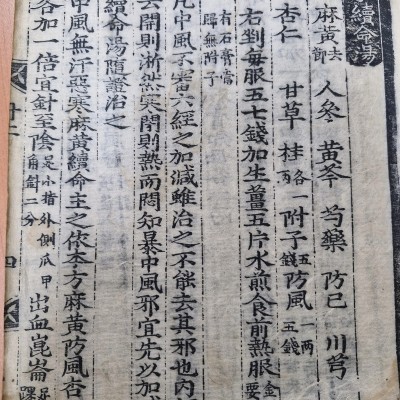 續命湯
麻黃去節 人參 黃芩 芍藥 防己 川芎
杏仁 甘草 桂各一兩 附子五錢 防風一兩五錢
右剉每服五七錢加生薑五片水煎食前熱服
有石膏當歸無附子
凡中風不審六經之加減雖治之不能去其邪也內
云開則淅然寒閉則熱而悶知暴中風邪宜先以加
續命湯隨證治之
中風無汗惡寒麻黃續命主之依本方麻黃防風杏
各加一倍宜針至陰足小指外側爪甲角針二分出血崑崙足
四